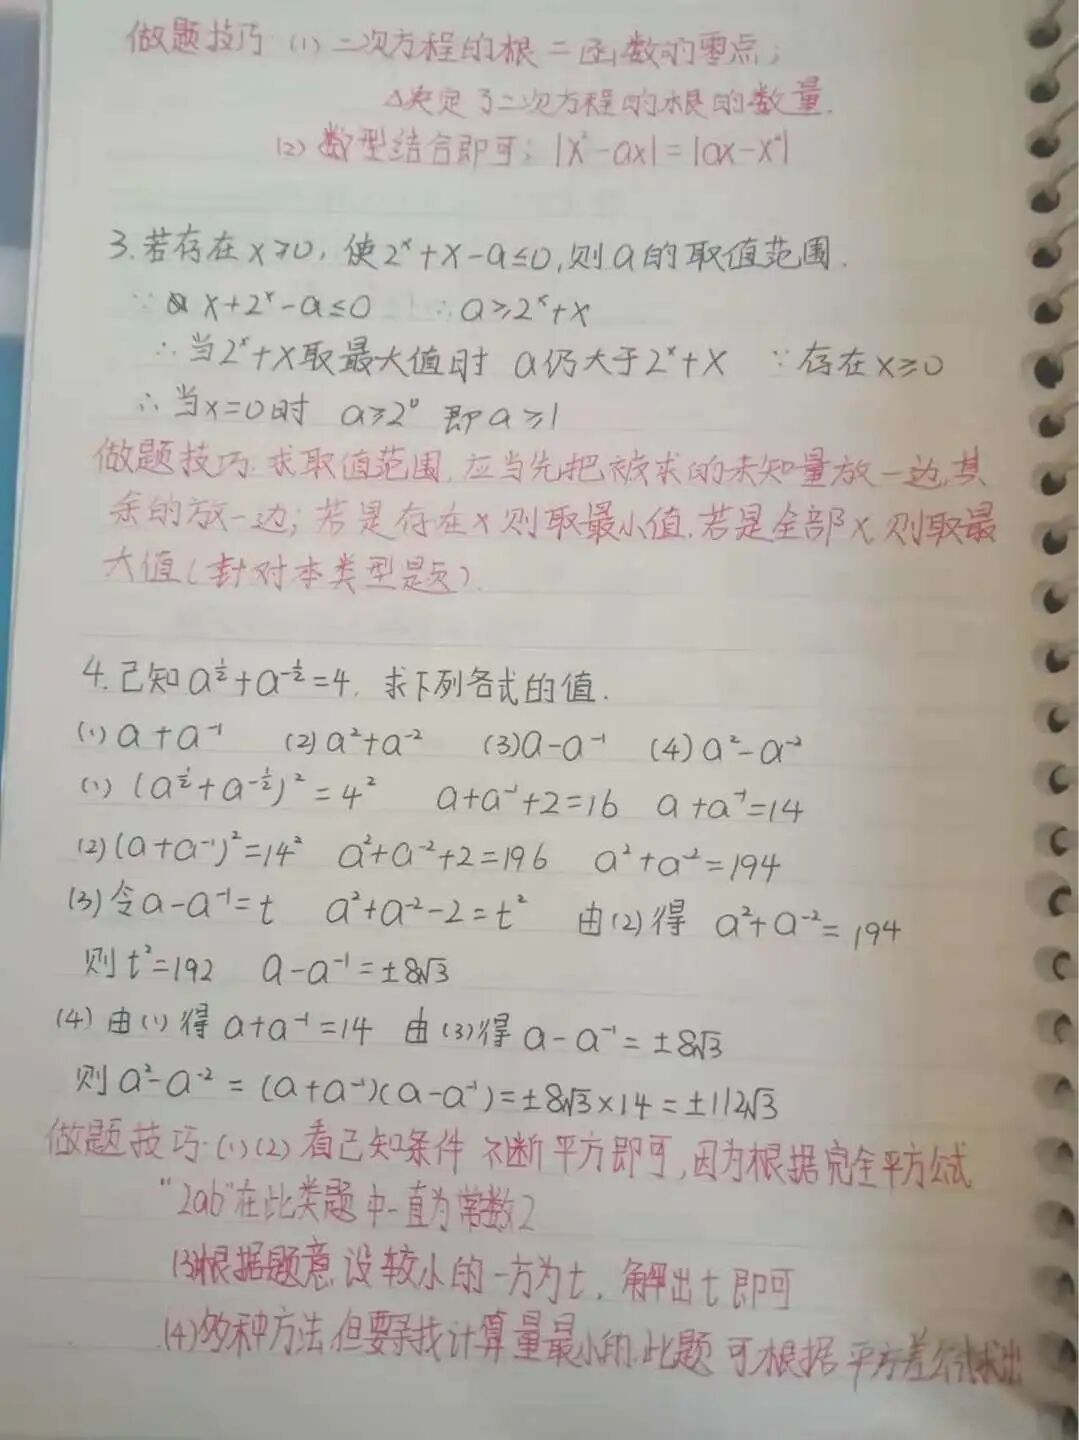 做题技巧:(1)二次方程的根=函数的零点;
△决定了二次方程的根的数量.
(2)数型结合即可;|x²-ax|=|ax-x²|
3.若存在x≥0,使2ˣ+x-a≤0,则a的取值范围.
∵x+2ˣ-a≤0 ∴a≥2ˣ+x
∴当2ˣ+x取最大值时 a仍大于2ˣ+x ∵存在x≥0
∴当x=0时 a≥2⁰ 即a≥1
做题技巧:求取值范围,应当先把被求的未知量放一边,其
余的放一边;若是存在x则取最小值,若是全部x,则取最
大值(针对本类型题).
4.已知a^½+a^-½=4,求下列各式的值.
(1)a+a⁻¹ (2)a²+a⁻² (3)a-a⁻¹ (4)a²-a⁻²
(1)(a^½+a^-½)²=4² a+a⁻¹+2=16 a+a⁻¹=14
(2)(a+a⁻¹)²=14² a²+a⁻²+2=196 a²+a⁻²=194
(3)令a-a⁻¹=t a²+a⁻²-2=t² 由(2)得 a²+a⁻²=194
则t²=192 a-a⁻¹=±8√3
(4)由(1)得a+a⁻¹=14 由(3)得a-a⁻¹=±8√3
则a²-a⁻²=(a+a⁻¹)(a-a⁻¹)=±8√3×14=±112√3
做题技巧:(1)(2)看已知条件 不断平方即可,因为根据完全平方公式
"2ab"在此类题中一直为常数2
(3)根据题意,设较小的一方为t,解出t即可
(4)多种方法,但要寻找计算量最小的,此题可根据平方差公式求出